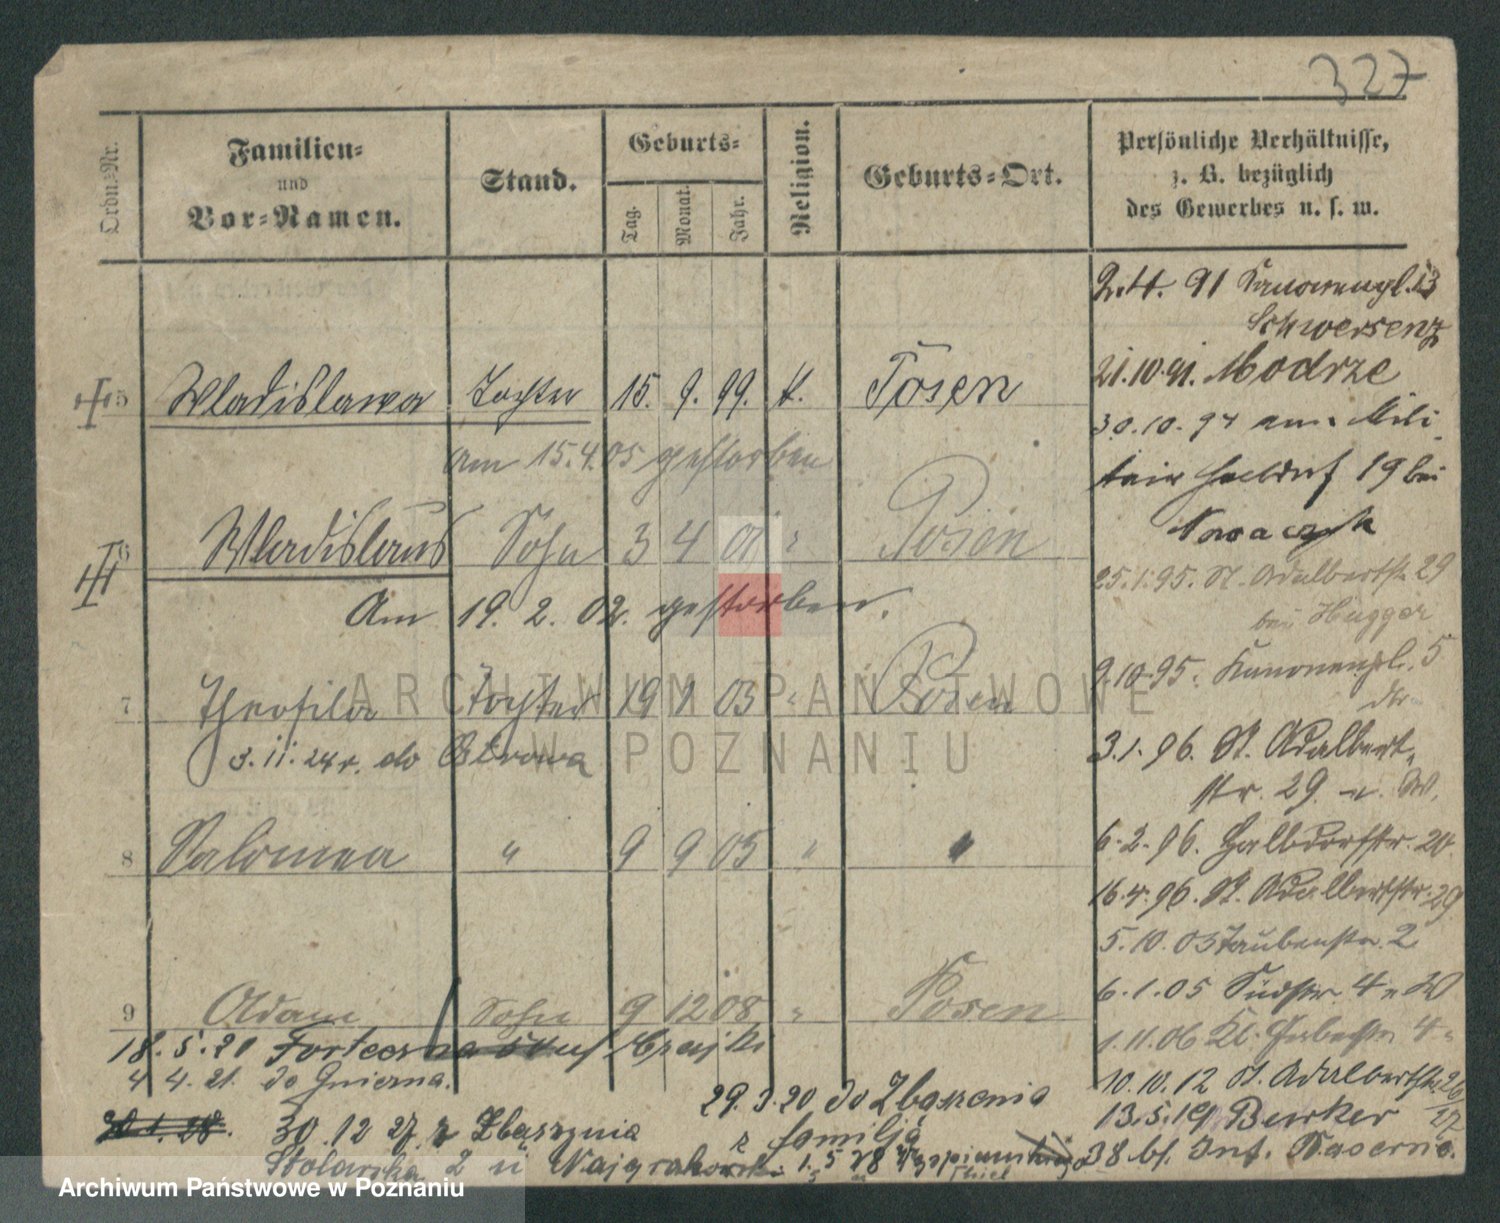 327
Ordn.-Nr.
Familien-
und
Vor-Namen.
Stand.
Geburts-
Tag.
Monat.
Jahr.
Religion.
Geburts-Ort.
Persönliche Verhältnisse,
z. B. bezüglich
des Gewerbes u. s. w.
2.4.91 Kanonenpl. 13
Schwersenz
21.10.91. Modrze
30.10.94 am Mili
tair 19 bei
Nowaczyk
25.1.95. St. Adalbertstr 29
bei Hugger
9.10.95. Kanonenpl. 5
3.1.96. St. Adalbert-
str. 29 W.
6.2.96. Halbdorfstr. 20
16.4.96. St. Adalbertstr. 29
5.10.03 Taubenstr. 2
6.1.05 Südstr. 4 W
1.11.06 Kl. 4
10.10.12 St. Adalbertstr. 26/27
13.5.19 Berker
38 bl. Inf. Kaserne.
5 Wladislawa Tochter 15. 9. 99. k. Posen
am 15.4.05 gestorben
6 Wladislaus Sohn 3 4 01 " Posen
Am 19. 2. 02. gestorben.
7 Theofila Tochter 19 1 03 " Posen
3.11.24 r. do Ostrowa
8 Salomea " 9 9 05 " "
9 Adam Sohn 9 12 08 " Posen
18.5.20 Forteczna
4 4.21. do Gniezna.
29.3.20 do Zbąszenia
z familją
30.12 27 z Zbąszynia
Stolarska 2 u Najgrakowski 1.5 28
ARCHIWUM PAŃSTWOWE
W POZNANIU
Archiwum Państwowe w Poznaniu